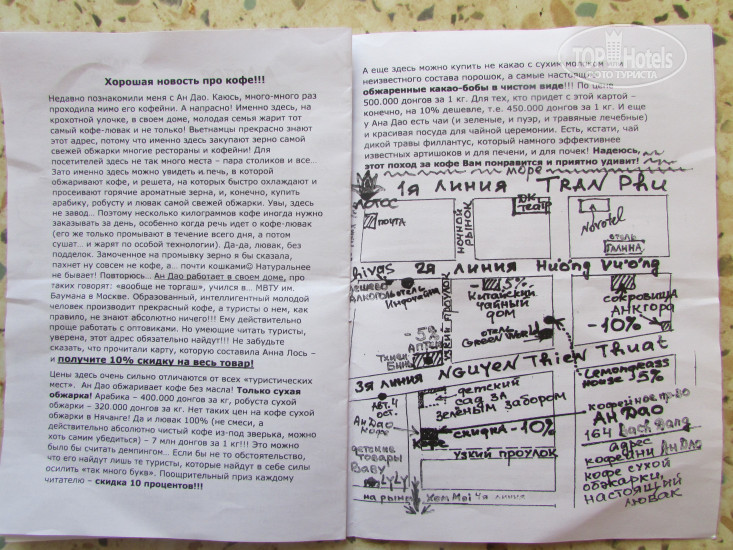 Хорошая новость про кофе!!!
Недавно познакомили меня с Ан Дао. Каюсь, много-много раз
проходила мимо его кофейни. А напрасно! Именно здесь, на
крохотной улочке, в своем доме, молодая семья жарит тот
самый кофе-лювак и не только! Вьетнамцы прекрасно знают
этот адрес, потому что именно здесь закупают зерно самой
свежей обжарки многие рестораны и кофейни! Для
посетителей здесь не так много места – пара столиков и все…
Зато именно здесь можно увидеть и печь, в которой
обжаривают кофе, и решета, на которых быстро охлаждают и
просеивают горячие ароматные зерна, и, конечно, купить
арабику, робусту и лювак самой свежей обжарки. Увы, здесь
не завод… Поэтому несколько килограммов кофе иногда нужно
заказывать за день, особенно когда речь идет о кофе-лювак
(его же только промывают в течение всего дня, а потом
сушат… и жарят по особой технологии). Да-да, лювак, без
подделок. Замоченное на промывку зерно я бы сказала,
пахнет ну совсем не кофе, а… почти кошками☺ Натуральнее
не бывает! Повторюсь… Ан Дао работает в своем доме, про
таких говорят: «вообще не торгаш», учился в… МВТУ им.
Баумана в Москве. Образованный, интеллигентный молодой
человек производит прекрасный кофе, а туристы о нем, как
правило, не знают абсолютно ничего!!! Ему действительно
проще работать с оптовиками. Но умеющие читать туристы,
уверена, этот адрес обязательно найдут!!! Не забудьте
сказать, что прочитали карту, которую составила Анна Лось –
и получите 10% скидку на весь товар!
Цены здесь очень сильно отличаются от всех «туристических
мест». Ан Дао обжаривает кофе без масла! Только сухая
обжарка! Арабика – 400.000 донгов за кг, робуста сухой
обжарки – 320.000 донгов за кг. Нет таких цен на кофе сухой
обжарки в Нячанге! Да и лювак 100% (не смеси, а
действительно абсолютно чистый кофе из-под зверька, можно
хоть самим убедиться) – 7 млн донгов за 1 кг!!! Это можно
было бы считать демпингом… Если бы не то обстоятельство,
что его найдут лишь те туристы, которые найдут в себе силы
осилить «так много букв». Поощрительный приз каждому
читателю – скидка 10 процентов!!!
А еще здесь можно купить не какао с сухим молоком или
неизвестного состава порошок, а самые настоящие
обжаренные какао-бобы в чистом виде!!! По цене
500.000 донгов за 1 кг. Для тех, кто придет с этой картой –
конечно, на 10% дешевле, т.е. 450.000 донгов за 1 кг. И еще
у Ан Дао есть чаи (и зеленые, и пуэр, и травяные лечебные)
и красивая посуда для чайной церемонии. Есть, кстати, чай
дикой травы филлантус, который намного эффективнее
известных артишоков и для печени, и для почек! Надеюсь,
этот поход за кофе Вам понравится и приятно удивит!
TOP Hotels
ФОТО ТУРИСТА
море
1я линия TRAN Phu
лотос
почта
ночной рынок
театр
Novotel
отель ГАЛИНА
2я линия Hương Vương
алкоголь
узкий проулок
-5% Китайский чайный дом
отель GREEN World
сокровища АНКГОРА
-10%
-5%
3я линия NGUYEN Thien Thuat
Lemongrass House -5%
авт. 4 ост.
детский сад за зеленым забором
Ан Дао кофе
скидка -10%
кофе
узкий проулок
детские товары BABY
LYLY
на рынок
линия
кофейное пр-во
АН ДАО
164 Bach Dang
адрес кофейни Ан Дао
кофе сухой обжарки,
настоящий лювак